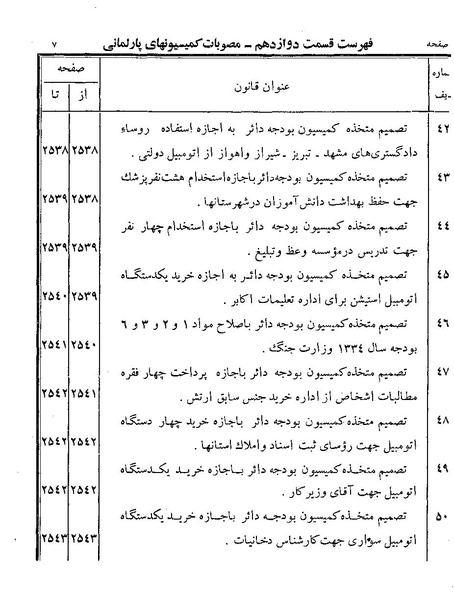 صفحه فهرست قسمت دوازدهم ـ مصوبات کمیسیونهای پارلمانی ۷
شماره ردیف عنوان قانون صفحه
از تا
۴۲ تصمیم متخذه کمیسیون بودجه دائر به اجازه استفاده روساء
دادگستری‌های مشهد ـ تبریز ـ شیراز واهواز از اتومبیل دولتی . ۲۵۳۸ ۲۵۳۸
۴۳ تصمیم متخذه کمیسیون بودجه دائر باجازه استخدام هشت نفر پزشك
جهت حفظ بهداشت دانش‌آموزان درشهرستانها . ۲۵۳۸ ۲۵۳۹
۴۴ تصمیم متخذه کمیسیون بودجه دائر باجازه استخدام چهار نفر
جهت تدریس درمؤسسه وعظ وتبلیغ . ۲۵۳۹ ۲۵۳۹
۴۵ تصمیم متخذه کمیسیون بودجه دائر به اجازه خرید یکدستگاه
اتومبیل استیشن برای اداره تعلیمات اکابر . ۲۵۳۹ ۲۵۴۰
۴۶ تصمیم متخذه کمیسیون بودجه دائر باصلاح مواد ۱ و ۲ و ۳ و ۶
بودجه سال ۱۳۳۴ وزارت جنگ . ۲۵۴۰ ۲۵۴۱
۴۷ تصمیم متخذه کمیسیون بودجه دائر باجازه پرداخت چهار فقره
مطالبات اشخاص از اداره خرید جنس سابق ارتش . ۲۵۴۱ ۲۵۴۲
۴۸ تصمیم متخذه کمیسیون بودجه دائر باجازه خرید چهار دستگاه
اتومبیل جهت رؤسای ثبت اسناد واملاك استانها . ۲۵۴۲ ۲۵۴۲
۴۹ تصمیم متخذه کمیسیون بودجه دائر باجازه خرید یکدستگاه
اتومبیل جهت آقای وزیر کار . ۲۵۴۲ ۲۵۴۲
۵۰ تصمیم متخذه کمیسیون بودجه دائر باجازه خرید یکدستگاه
اتومبیل سواری جهت کارشناس دخانیات . ۲۵۴۳ ۲۵۴۳